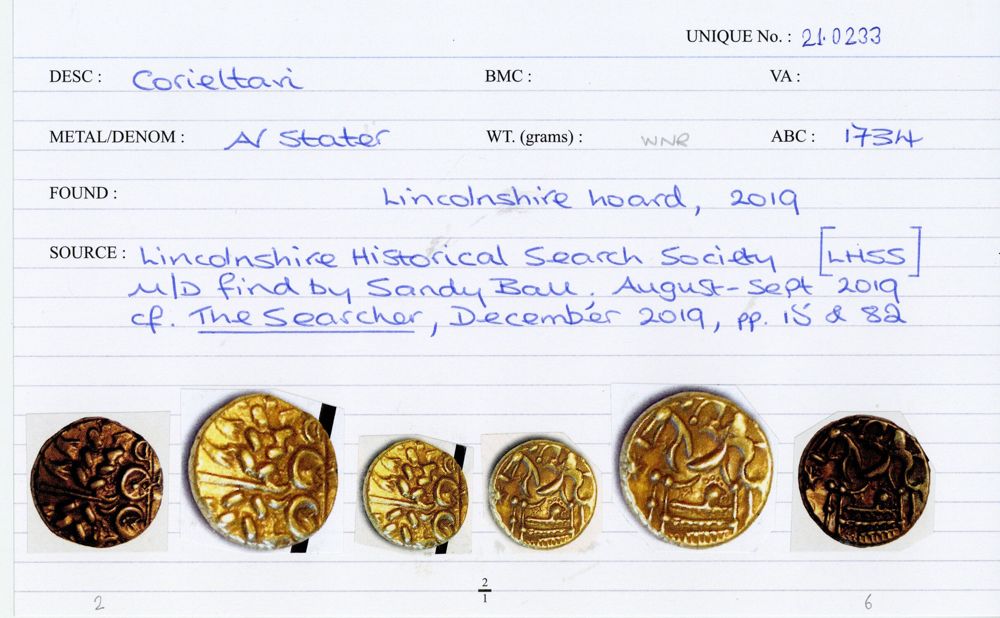 UNIQUE No. : 21.0233
DESC : Corieltavi BMC : VA :
METAL/DENOM : AV Stater WT. (grams) : WNR ABC : 1734
FOUND : Lincolnshire hoard, 2019
SOURCE : Lincolnshire Historical Search Society [LHSS]
M/D find by Sandy Ball. August-Sept 2019
cf. The Searcher, December 2019, pp. 15 & 82
2 2/1 6